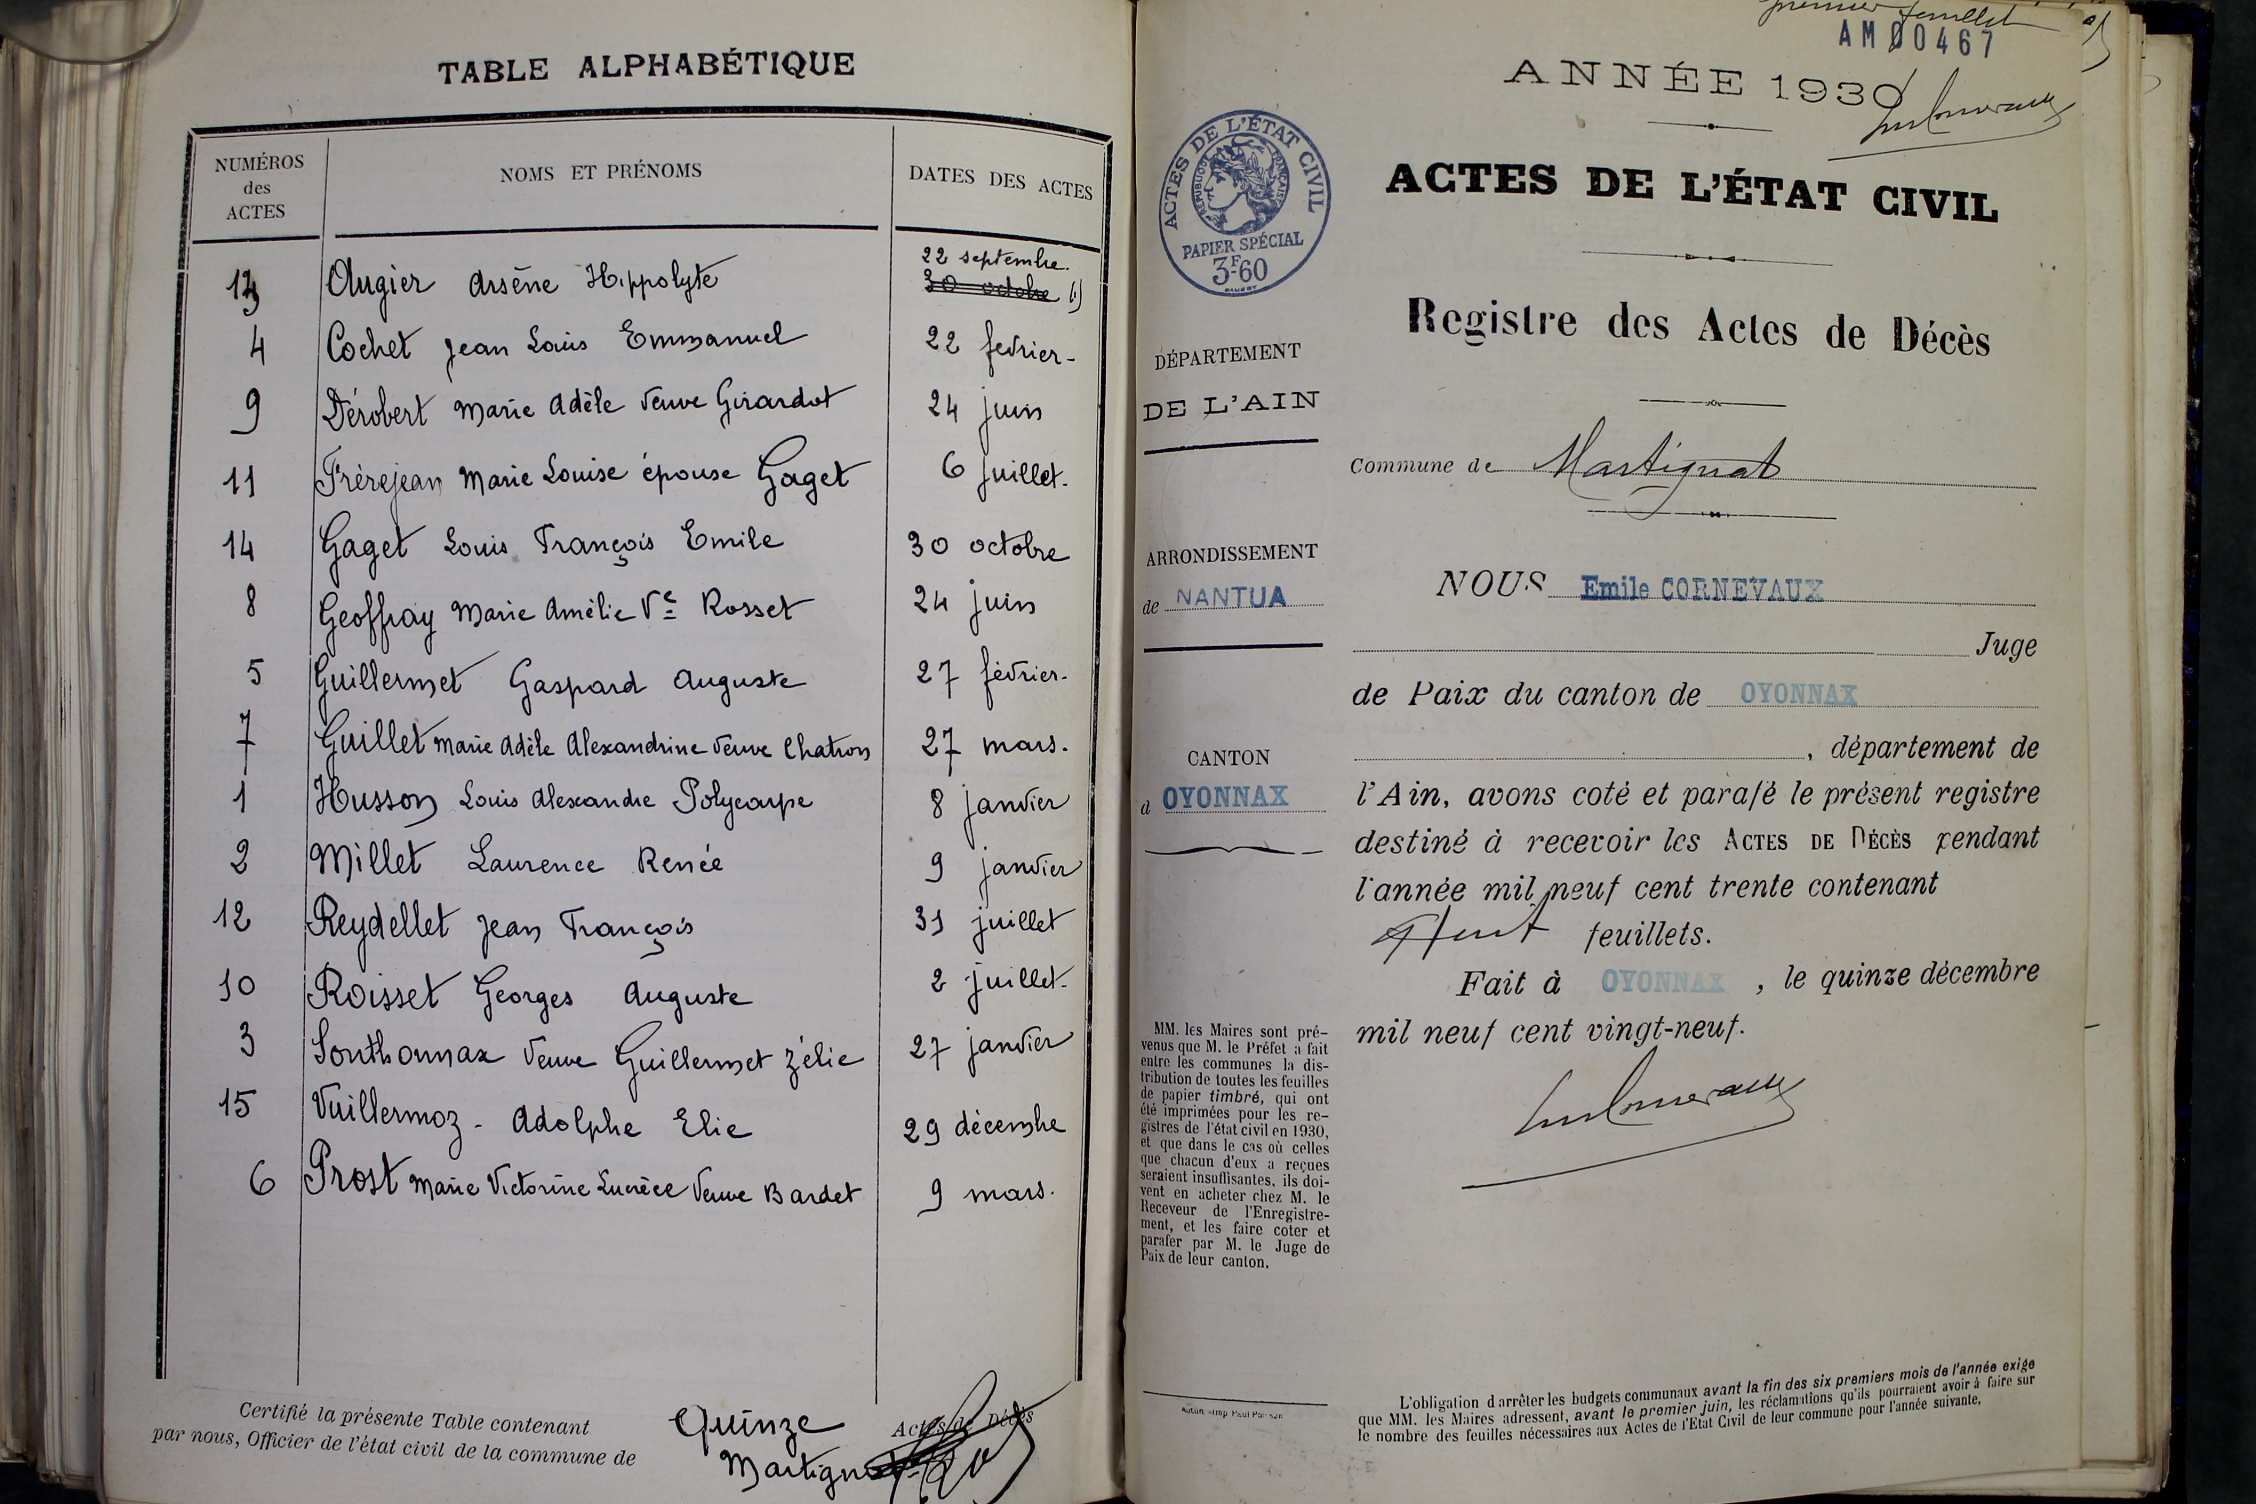 TABLE ALPHABÉTIQUE
NUMÉROS des ACTES
NOMS ET PRÉNOMS
DATES DES ACTES
22 septembre.
13 Augier Arsène Hippolyte 30 octobre (1)
4 Cochet Jean Louis Emmanuel 22 fevrier-
9 Dérobert Marie Adèle Veuve Girardot 24 juin
11 Frèrejean Marie Louise épouse Gaget 6 juillet.
14 Gaget Louis François Emile 30 octobre
8 Geoffray Marie Amélie Ve Rosset 24 juin
5 Guillermet Gaspard Auguste 27 février.
7 Guillet Marie Adèle Alexandrine Veuve Chatron 27 mars.
1 Husson Louis Alexandre Polycarpe 8 janvier
2 Millet Laurence Renée 9 janvier
12 Reydellet Jean François 31 juillet
10 Roisset Georges Auguste 2 juillet.
3 Sonthonnax Veuve Guillermet Zélie 27 janvier
15 Vuillermoz - Adolphe Elie 29 décembre
6 Prost Marie Victorine Lucrèce Veuve Bardet 9 mars.
Certifié la présente Table contenant Quinze Actes de Décès
par nous, Officier de l'état civil de la commune de Martignat
premier feuillet
AM00467
ANNÉE 1930
ACTES DE L'ÉTAT CIVIL
RÉPUBLIQUE FRANÇAISE
PAPIER SPÉCIAL
3F.60
ACTES DE L'ÉTAT CIVIL
Registre des Actes de Décès
DÉPARTEMENT
DE L'AIN
Commune de Martignat
ARRONDISSEMENT
de NANTUA
NOUS Emile CORNEVAUX
Juge
de Paix du canton de OYONNAX
, département de
CANTON
d OYONNAX
l'Ain, avons coté et parafé le présent registre
destiné à recevoir les ACTES DE DÉCÈS pendant
l'année mil neuf cent trente contenant
feuillets.
Fait à OYONNAX, le quinze décembre
mil neuf cent vingt-neuf.
MM. les Maires sont pré-
venus que M. le Préfet a fait
entre les communes la dis-
tribution de toutes les feuilles
de papier timbré, qui ont
été imprimées pour les re-
gistres de l'état civil en 1930,
et que dans le cas où celles
que chacun d'eux a reçues
seraient insuffisantes, ils doi-
vent en acheter chez M. le
Receveur de l'Enregistre-
ment, et les faire coter et
parafer par M. le Juge de
Paix de leur canton.
L'obligation d'arrêter les budgets communaux avant la fin des six premiers mois de l'année exige
que MM. les Maires adressent, avant le premier juin, les réclamations qu'ils pourraient avoir à faire sur
le nombre des feuilles nécessaires aux Actes de l'Etat Civil de leur commune pour l'année suivante.